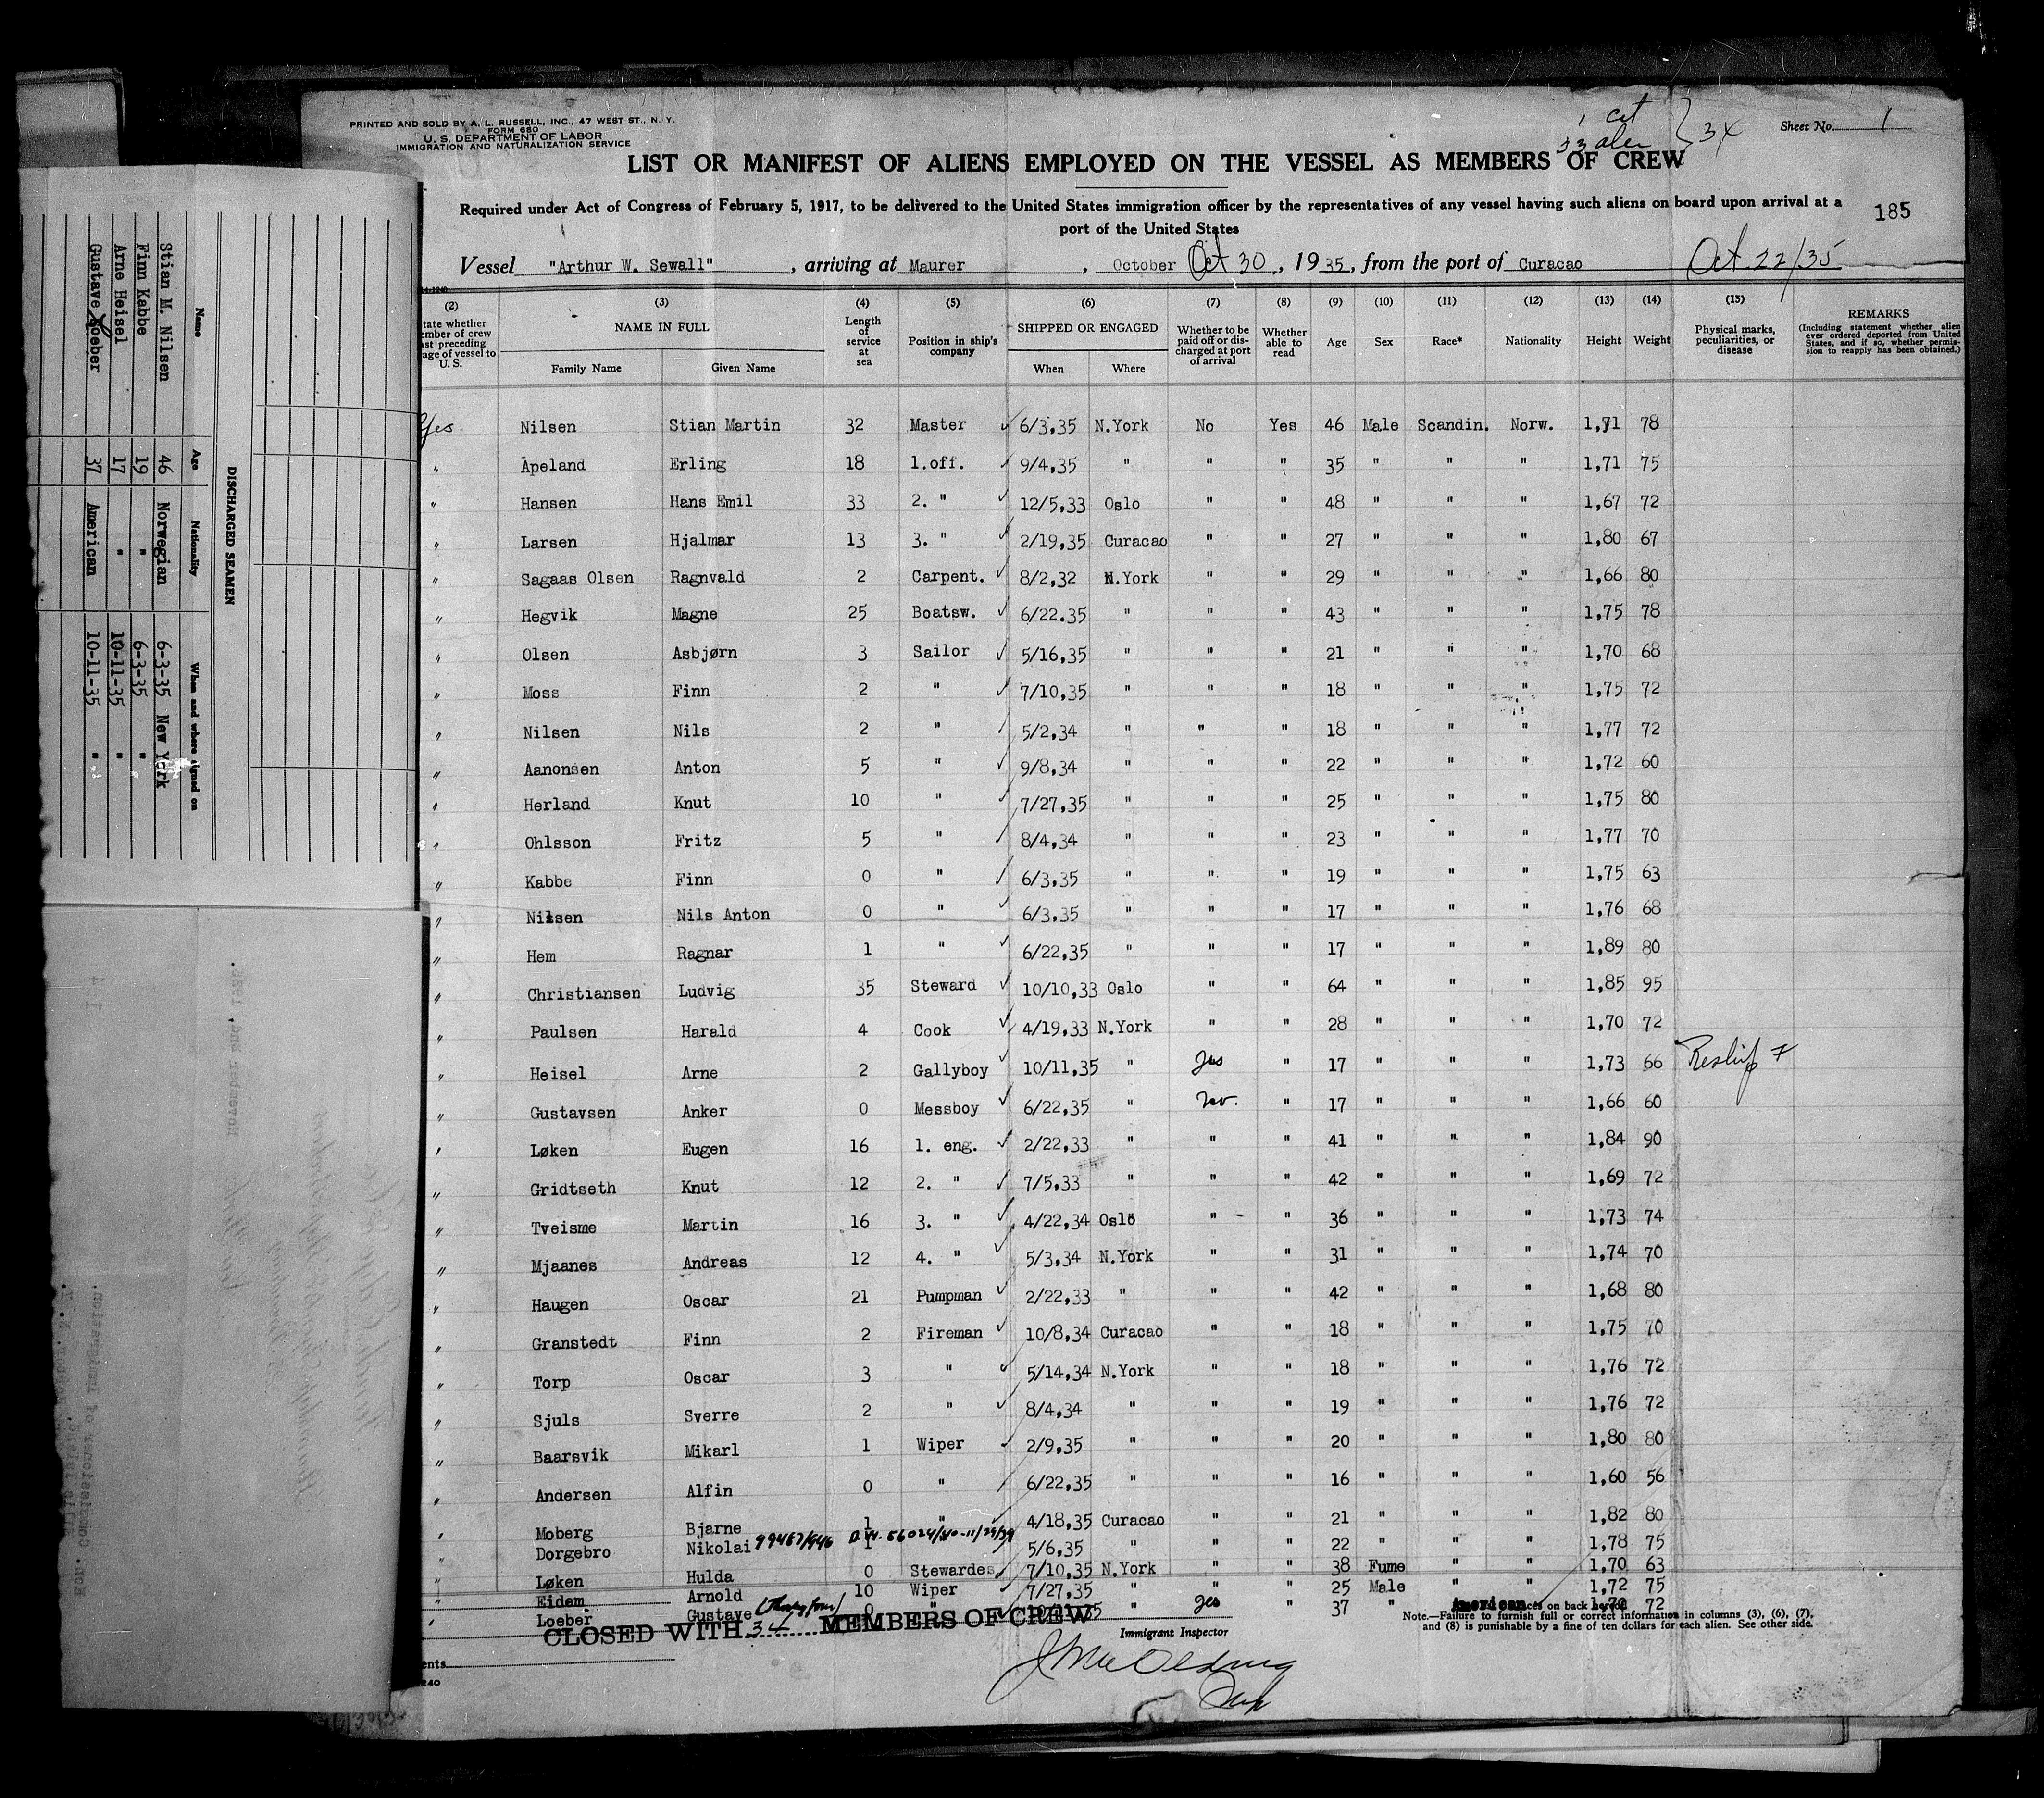 PRINTED AND SOLD BY A. L. RUSSELL, INC., 47 WEST ST., N. Y.
FORM 680
U. S. DEPARTMENT OF LABOR
IMMIGRATION AND NATURALIZATION SERVICE
1 cit
33 alien } 34
Sheet No. 1
LIST OR MANIFEST OF ALIENS EMPLOYED ON THE VESSEL AS MEMBERS OF CREW
Required under Act of Congress of February 5, 1917, to be delivered to the United States immigration officer by the representatives of any vessel having such aliens on board upon arrival at a
port of the United States
185
Vessel "Arthur W. Sewall", arriving at Maurer, October Oct 30, 1935, from the port of Curacao Oct 22/35
(2) (3) (4) (5) (6) (7) (8) (9) (10) (11) (12) (13) (14) (15) REMARKS
tate whether ember of crew ast preceding age of vessel to U. S. NAME IN FULL Family Name Given Name Length of service at sea Position in ship's company SHIPPED OR ENGAGED When Where Whether to be paid off or discharged at port of arrival Whether able to read Age Sex Race* Nationality Height Weight Physical marks, peculiarities, or disease (Including statement whether alien ever ordered deported from United States, and if so, whether permission to reapply has been obtained.)
Yes Nilsen Stian Martin 32 Master 6/3,35 N.York No Yes 46 Male Scandin. Norw. 1,71 78
" Apeland Erling 18 1.off. 9/4,35 " " " 35 " " " 1,71 75
" Hansen Hans Emil 33 2. " 12/5,33 Oslo " " 48 " " " 1,67 72
" Larsen Hjalmar 13 3. " 2/19,35 Curacao " " 27 " " " 1,80 67
" Sagaas Olsen Ragnvald 2 Carpent. 8/2,32 N.York " " 29 " " " 1,66 80
" Hegvik Magne 25 Boatsw. 6/22.35 " " " 43 " " " 1,75 78
" Olsen Asbjørn 3 Sailor 5/16,35 " " " 21 " " " 1,70 68
" Moss Finn 2 " 7/10,35 " " " 18 " " " 1,75 72
" Nilsen Nils 2 " 5/2,34 " " " 18 " " " 1,77 72
" Aanonsen Anton 5 " 9/8,34 " " " 22 " " " 1,72 60
" Herland Knut 10 " 7/27,35 " " " 25 " " " 1,75 80
" Ohlsson Fritz 5 " 8/4,34 " " " 23 " " " 1,77 70
" Kabbe Finn 0 " 6/3,35 " " " 19 " " " 1,75 63
" Nilsen Nils Anton 0 " 6/3,35 " " " 17 " " " 1,76 68
" Hem Ragnar 1 " 6/22,35 " " " 17 " " " 1,89 80
" Christiansen Ludvig 35 Steward 10/10,33 Oslo " " 64 " " " 1,85 95
" Paulsen Harald 4 Cook 4/19,33 N.York " " 28 " " " 1,70 72
" Heisel Arne 2 Gallyboy 10/11,35 " Yes " 17 " " " 1,73 66 Reship F
" Gustavsen Anker 0 Messboy 6/22,35 " No. " 17 " " " 1,66 60
" Løken Eugen 16 1. eng. 2/22,33 " " " 41 " " " 1,84 90
" Gridtseth Knut 12 2. " 7/5,33 " " " 42 " " " 1,69 72
" Tveisme Martin 16 3. " 4/22,34 Oslo " " 36 " " " 1,73 74
" Mjaanes Andreas 12 4. " 5/3,34 N.York " " 31 " " " 1,74 70
" Haugen Oscar 21 Pumpman 2/22,33 " " " 42 " " " 1,68 80
" Granstedt Finn 2 Fireman 10/8,34 Curacao " " 18 " " " 1,75 70
" Torp Oscar 3 " 5/14,34 N.York " " 18 " " " 1,76 72
" Sjuls Sverre 2 " 8/4,34 " " " 19 " " " 1,76 72
" Baarsvik Mikarl 1 Wiper 2/9,35 " " " 20 " " " 1,80 80
" Andersen Alfin 0 " 6/22,35 " " " 16 " " " 1,60 56
" Moberg Bjarne 1 " 4/18,35 Curacao " " 21 " " " 1,82 80
" Dorgebro Nikolai 1 5/6,35 " " " 22 " " " 1,78 75
" Løken Hulda 0 Stewardes 7/10,35 N.York " " 38 Fume " " 1,70 63
" Eidem Arnold 10 Wiper 7/27,35 " " " 25 Male " " 1,72 75
" Loeber Gustave 0 " 10/11,35 " Yes " 37 " American 1,70 72
CLOSED WITH 34 (thirty four) MEMBERS OF CREW
Immigrant Inspector
ces on back hereof
Note.—Failure to furnish full or correct information in columns (3), (6), (7),
and (8) is punishable by a fine of ten dollars for each alien. See other side.
ents
240
DISCHARGED SEAMEN
Name Age Nationality When and where signed on
Stian M. Nilsen 46 Norwegian 6-3-35 New York
Finn Kabbe 19 " 6-3-35 "
Arne Heisel 17 " 10-11-35 "
Gustave Loeber 37 American 10-11-35 "